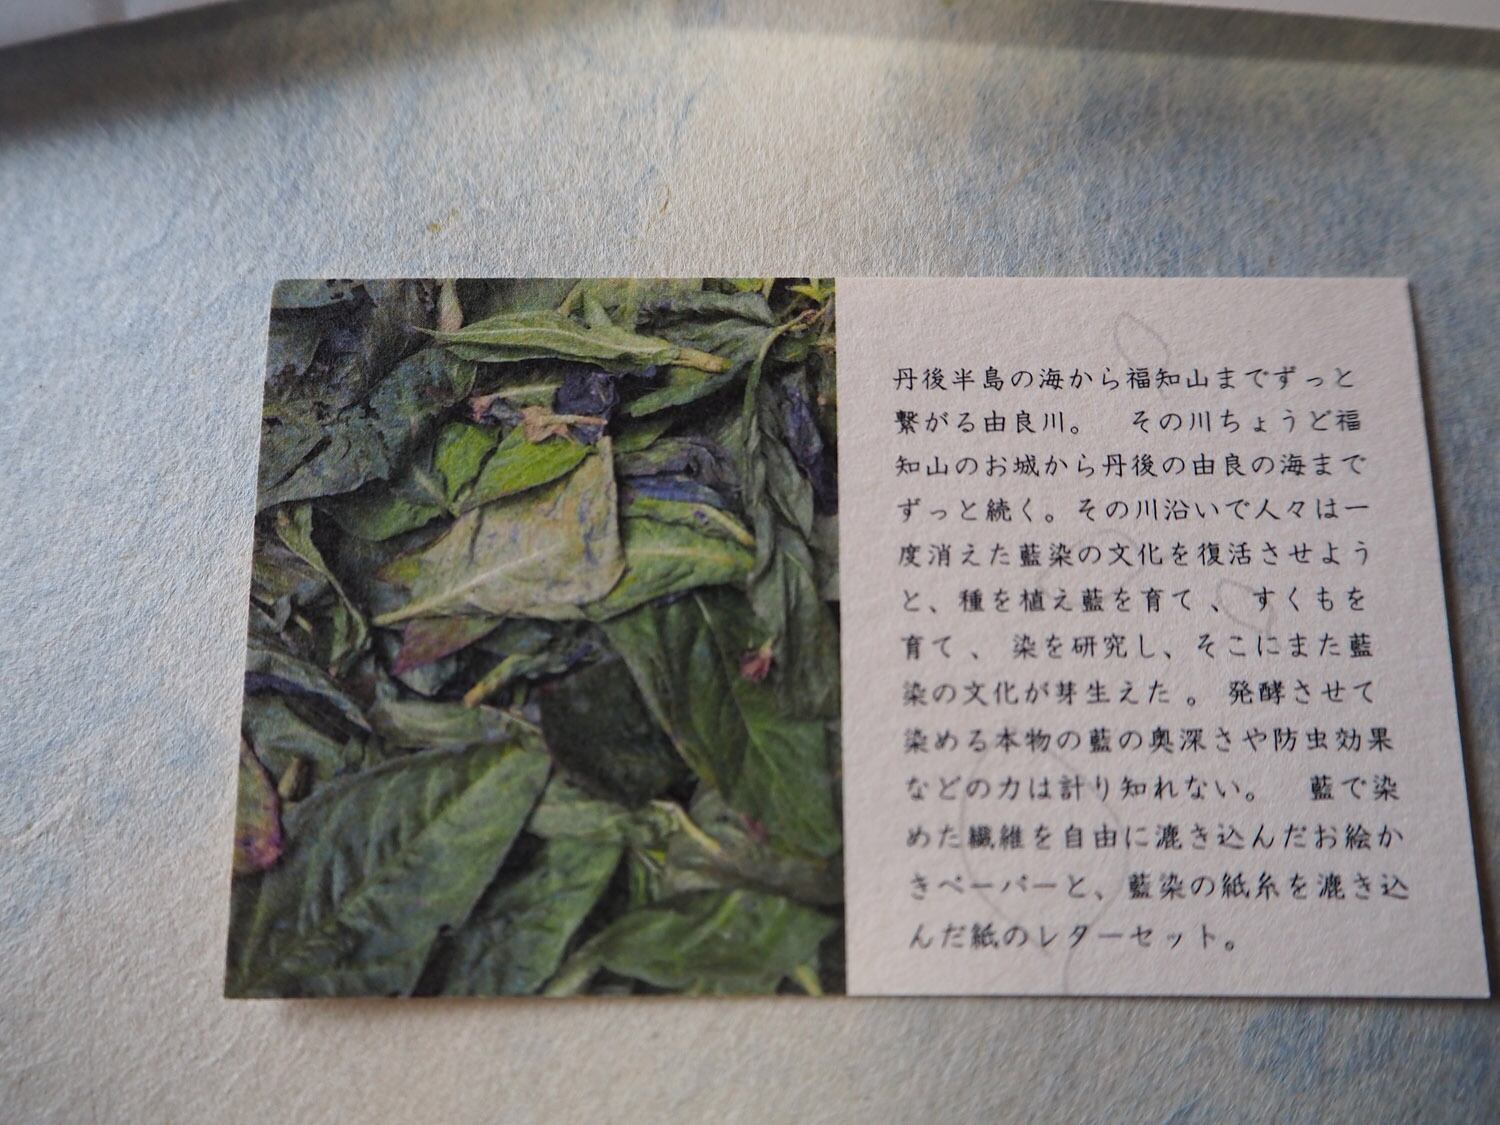 丹後半島の海から福知山までずっと
繋がる由良川。　その川ちょうど福
知山のお城から丹後の由良の海まで
ずっと続く。その川沿いで人々は一
度消えた藍染の文化を復活させよう
と、種を植え藍を育て 、 すくもを
育て 、 染を研究し、そこにまた藍
染の文化が芽生えた 。 発酵させて
染める本物の藍の奥深さや防虫効果
などの力は計り知れない。　藍で染
めた繊維を自由に漉き込んだお絵か
きペーパーと、藍染の紙糸を漉き込
んだ紙のレターセット。